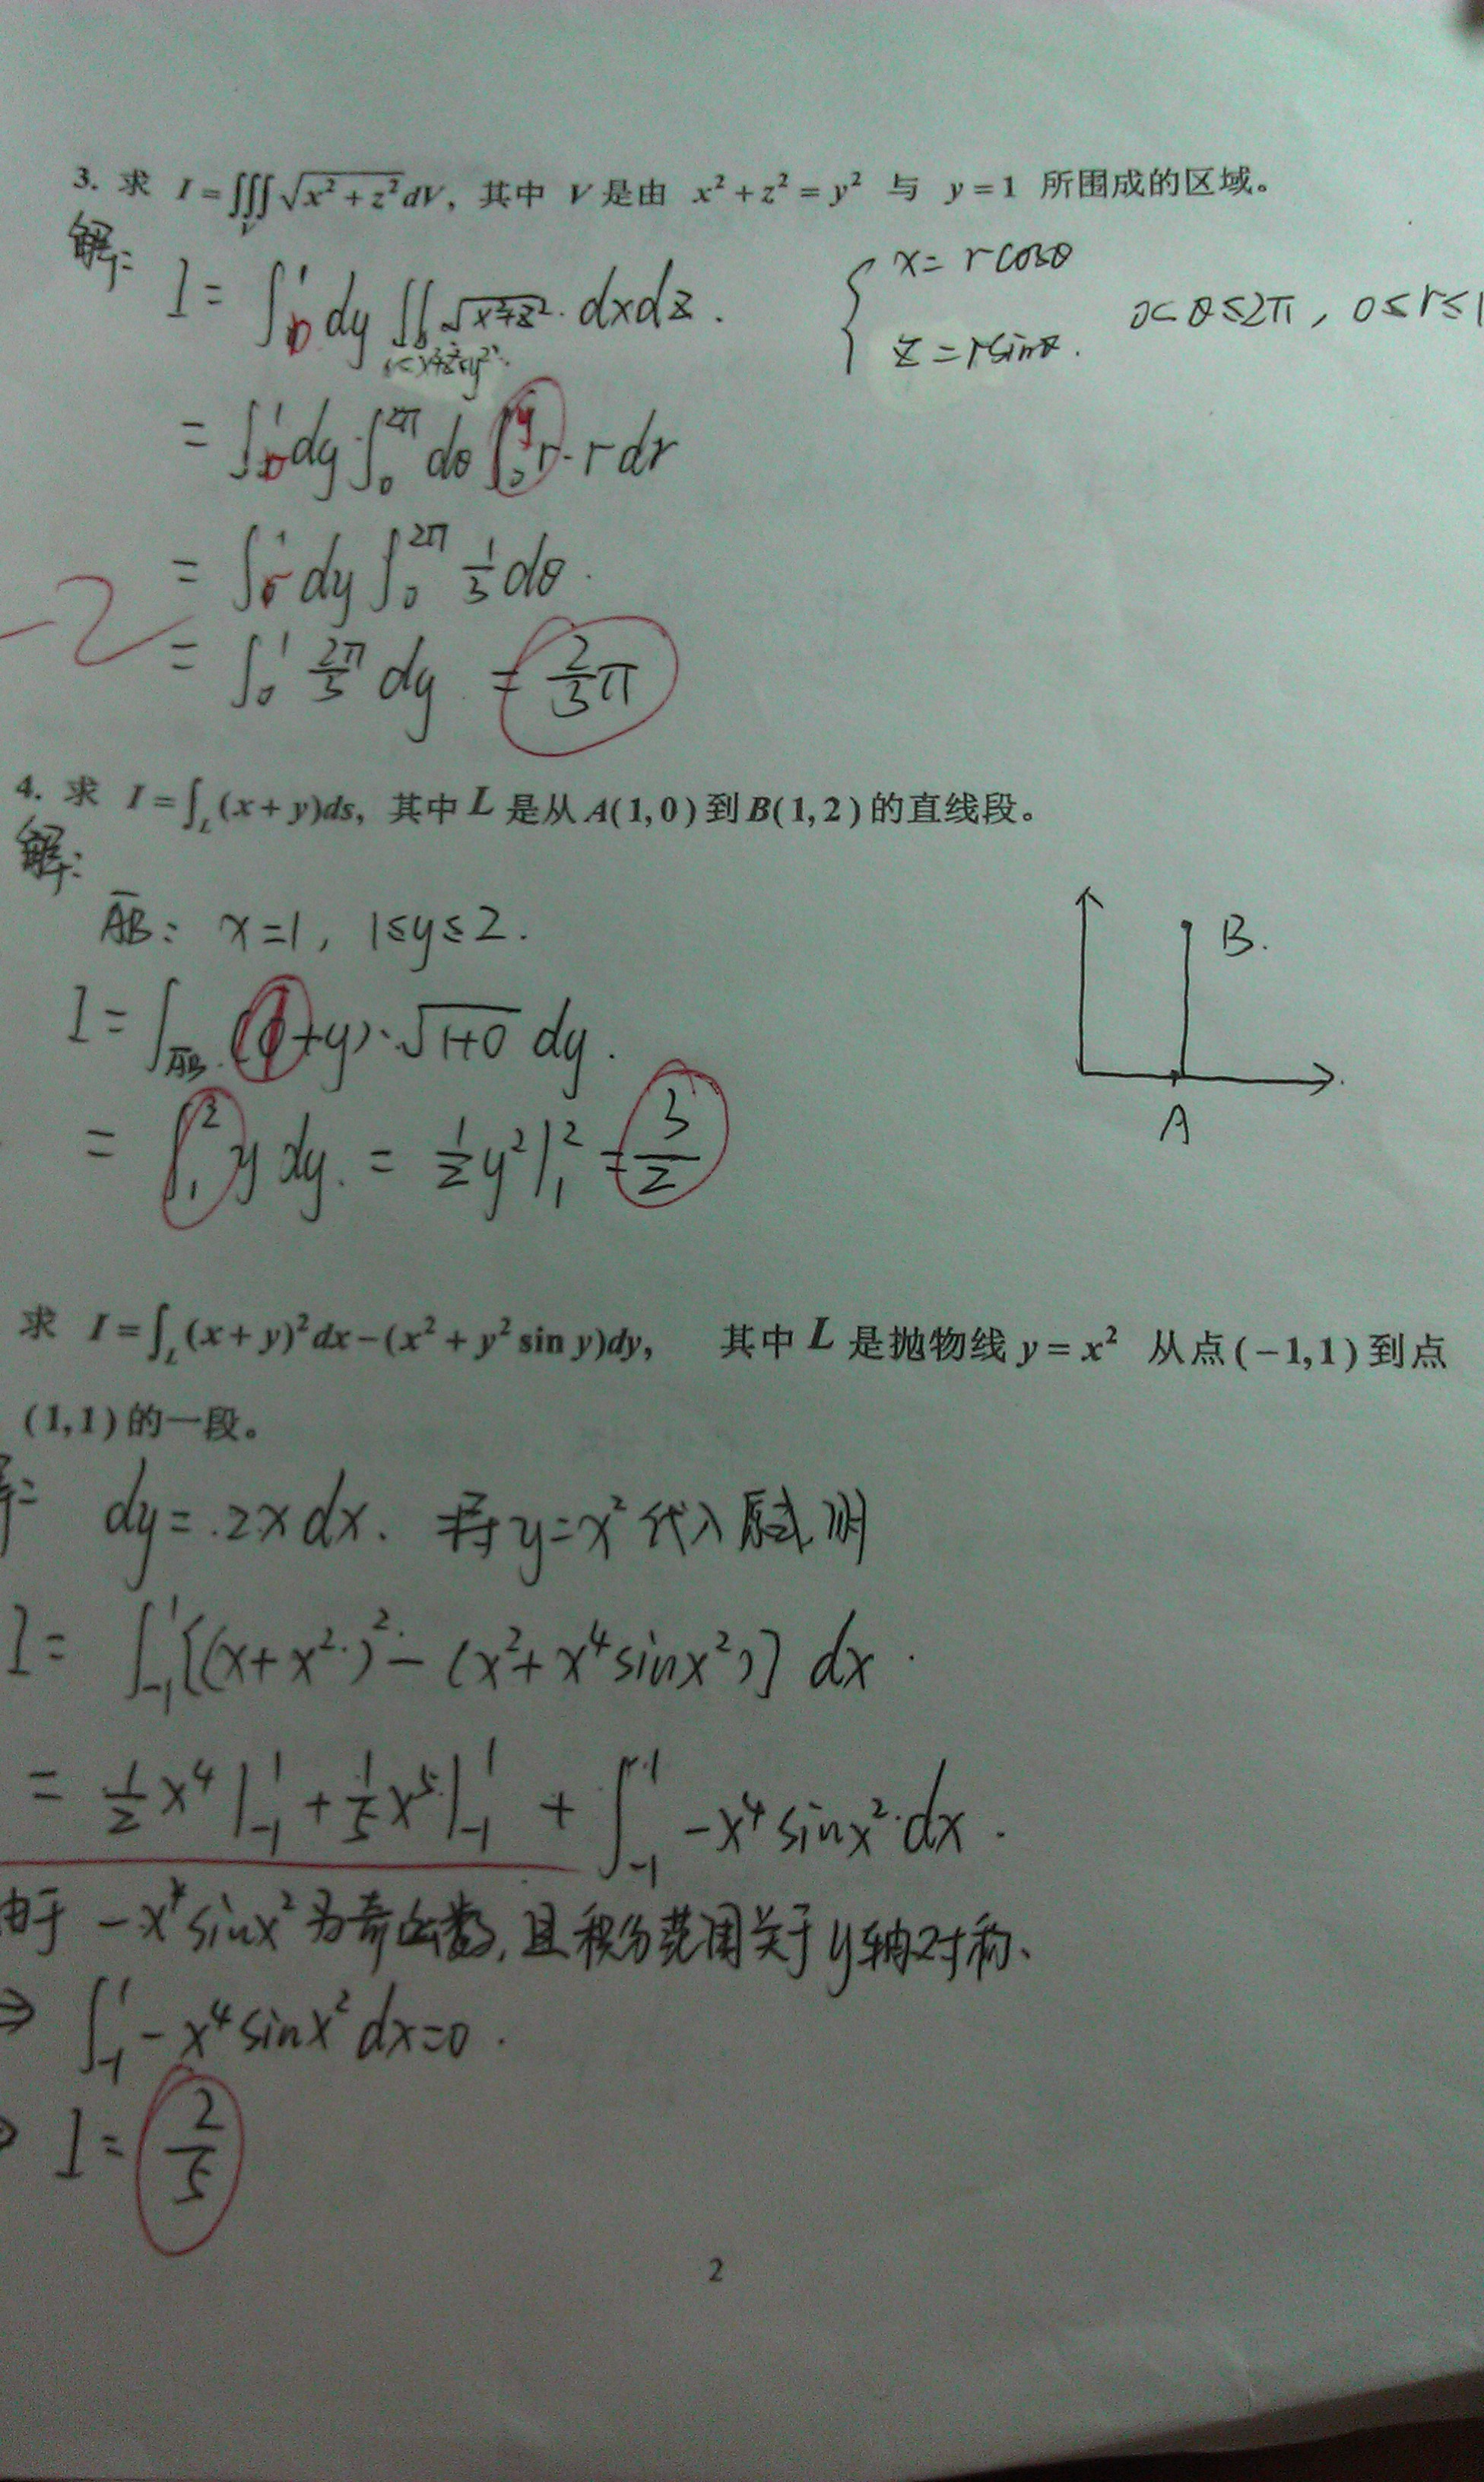 3. 求 I = ∭_V √(x² + z²) dV, 其中 V 是由 x² + z² = y² 与 y = 1 所围成的区域。
解:
I = ∫₀¹ dy ∬ √(x²+z²) dxdz.
{ x = r cosθ
z = r sinθ.
0 < θ ≤ 2π, 0 ≤ r ≤ 1
= ∫₀¹ dy ∫₀^{2π} dθ ∫₀^y r · r dr
= ∫₀¹ dy ∫₀^{2π} 1/3 dθ.
-2
= ∫₀¹ 2π/3 dy = 2/3 π
4. 求 I = ∫_L (x + y)ds, 其中 L 是从 A(1,0) 到 B(1,2) 的直线段。
解:
AB: x = 1, 1 ≤ y ≤ 2.
B.
I = ∫_AB ( + y) · √(1+0) dy.
A
= ∫₁² y dy. = 1/2 y² |₁² = 3/2
求 I = ∫_L (x + y)² dx − (x² + y² sin y)dy, 其中 L 是抛物线 y = x² 从点 (−1,1) 到点
(1,1) 的一段。
dy = 2x dx. 将 y = x² 代入原式, 则
I = ∫₋₁¹ [(x + x²)² − (x² + x⁴ sin x²)] dx.
= 1/2 x⁴ |₋₁¹ + 1/5 x⁵ |₋₁¹ + ∫₋₁¹ −x⁴ sin x² dx.
由于 −x⁴ sin x² 为奇函数, 且积分范围关于 y 轴对称、
⇒ ∫₋₁¹ −x⁴ sin x² dx = 0.
⇒ I = 2/5
2